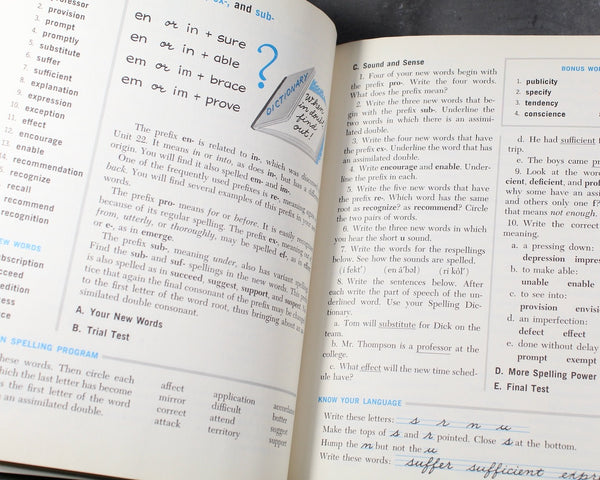 ex-, and sub-
2. provision
3. prompt
4. promptly
5. substitute
6. suffer
7. sufficient
8. explanation
9. expression
10. exception
11. effect
12. encourage
13. enable
14. recommendation
15. recognize
recall
recommend
recognition
NEW WORDS
en or in + sure
en or in + able
em or im + brace
em or im + prove
?
DICTIONARY
When
in doubt
find
out!
The prefix en- is related to in-, which was
Unit 22. It means in or into, as does in-,
origin. You will find it also spelled em- and im-.
One of the frequently used prefixes is re-, meaning
back. You will find several examples of this prefix in your
words.
The prefix pro- means for or before. It is easily
because of its regular spelling. The prefix ex-, meaning
from, utterly, or thoroughly, may be spelled ef-
or e-, as in emerge.
The prefix sub-, meaning under, also has variant
Find the sub- and suf- spellings in the new words. The
is also spelled as in succeed, suggest, support, and
tice that again the final consonant of the prefix may be
to the first letter of the word root, thus bringing about
similated double consonant.
A. Your New Words
B. Trial Test
SPELLING PROGRAM
these words. Then circle each
which the last letter has become
as the first letter of the word
an assimilated double.
affect application
mirror difficult
correct attend suggest
attack territory support
C. Sound and Sense
1. Four of your new words begin with
the prefix pro-. Write the four words.
What does the prefix mean?
2. Write the three new words that be-
gin with the prefix sub-. Underline the
two words in which there is an assimi-
lated double.
3. Write the four new words that have
the prefix ex-. Underline the word that has
an assimilated double.
4. Write encourage and enable. Under-
line the prefix in each.
5. Write the five new words that have
the prefix re-. Which word has the same
root as recognize? as recommend? Circle
the two pairs of words.
6. Write the three new words in which
you hear the short u sound.
7. Write the words for the respellings
below. See how the sounds are spelled.
8. Write the sentences below. After
each write the part of speech of the un-
derlined word. Use your Spelling Dic-
tionary.
a. Tom will substitute for Dick on the
team.
b. Mr. Thompson is a professor at the
college.
c. What effect will the new time sched-
ule have?
BONUS WOR
1. publicity
2. specify
3. tendency
4. conscience
d. He had sufficient
trip.
e. The boys came
9. Look at the word
cient, deficient, and prof
why some have an assi
and others only one f?
that means not enough.
10. Write the correct
meaning.
a. a pressing down:
depression impres
b. to make able:
unable enable
c. to see into:
provision envisi
d. an imperfection:
defect effect
e. done without delay
prompt exempt
D. More Spelling Power
E. Final Test
KNOW YOUR LANGUAGE
Write these letters: s r n u
Make the tops of s and r pointed. Close s at the bottom.
Hump the n but not the u.
Write these words: suffer sufficient expre